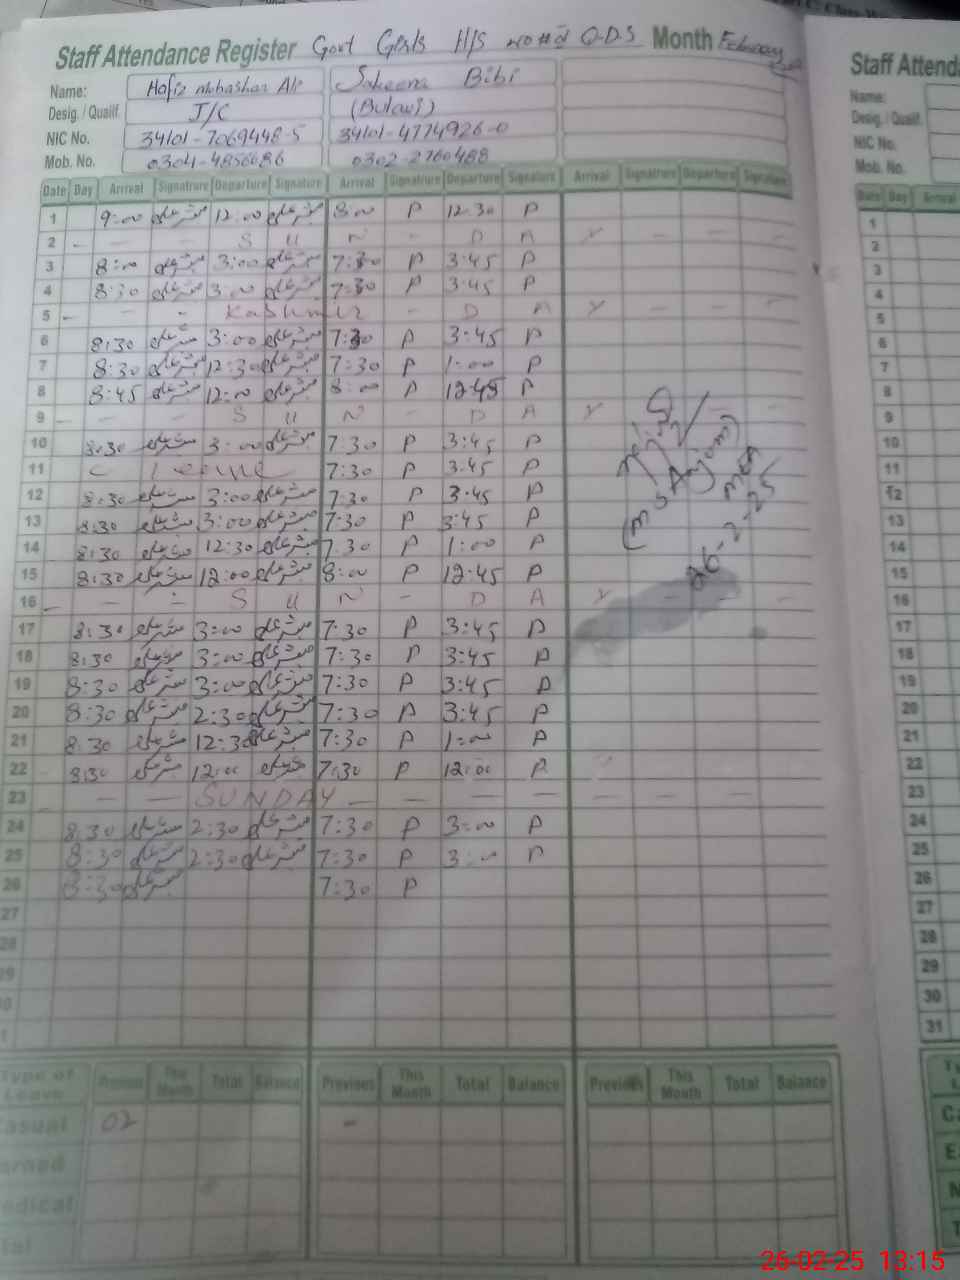 Staff Attendance Register Govt Girls H/S Q.D.S Month February
Name: Hafiz Mubashar Ali Sakeena Bibi
Desig. / Qualif. J/C (Bulawi)
NIC No. 34101-7069448-5 34101-4774926-0
Mob. No. 0304-4856686 0302-2760488
Date Day Arrival Signature Departure Signature Arrival Signature Departure Signature Arrival Signature Departure Signature
1 9:00 مبشر علی 12:00 مبشر علی 8:00 P 12:30 P
2 - - - S U N - D A Y - - -
3 8:00 مبشر علی 3:00 مبشر علی 7:30 P 3:45 P
4 8:30 مبشر علی 3:00 مبشر علی 7:30 P 3:45 P
5 - - - Kashmir - D A Y - - -
6 8:30 مبشر علی 3:00 مبشر علی 7:30 P 3:45 P
7 8:30 مبشر علی 12:30 مبشر علی 7:30 P 1:00 P
8 8:45 مبشر علی 12:00 مبشر علی 8:00 P 12:45 P
9 - - - S U N - D A Y - -
10 8:30 مبشر علی 3:00 مبشر علی 7:30 P 3:45 P
11 C Leave 7:30 P 3:45 P
12 8:30 مبشر علی 3:00 مبشر علی 7:30 P 3:45 P
13 8:30 مبشر علی 3:00 مبشر علی 7:30 P 3:45 P
14 8:30 مبشر علی 12:30 مبشر علی 7:30 P 1:00 P
15 8:30 مبشر علی 12:00 مبشر علی 8:00 P 12:45 P
16 - - - S U N - D A Y - - -
17 8:30 مبشر علی 3:00 مبشر علی 7:30 P 3:45 P
18 8:30 مبشر علی 3:00 مبشر علی 7:30 P 3:45 P
19 8:30 مبشر علی 3:00 مبشر علی 7:30 P 3:45 P
20 8:30 مبشر علی 2:30 مبشر علی 7:30 P 3:45 P
21 8:30 مبشر علی 12:30 مبشر علی 7:30 P 1:00 P
22 8:30 مبشر علی 12:00 مبشر علی 7:30 P 12:00 P
23 - - - SUNDAY - - - - - - -
24 8:30 مبشر علی 2:30 مبشر علی 7:30 P 3:00 P
25 8:30 مبشر علی 2:30 مبشر علی 7:30 P 3:00 P
26 8:30 مبشر علی 7:30 P
27
28
29
30
31
(Ms Anjum)
MEA
26-2-25
Type of Leave Previous This Month Total Balance Previous This Month Total Balance Previous This Month Total Balance
Casual 02 -
Earned
Medical
Total
Staff Attenda
Name:
Desig. / Qualif.
NIC No.
Mob. No.
Date Day Arrival
1
2
3
4
5
6
7
8
9
10
11
12
13
14
15
16
17
18
19
20
21
22
23
24
25
26
27
28
29
30
31
26-02-25 13:15